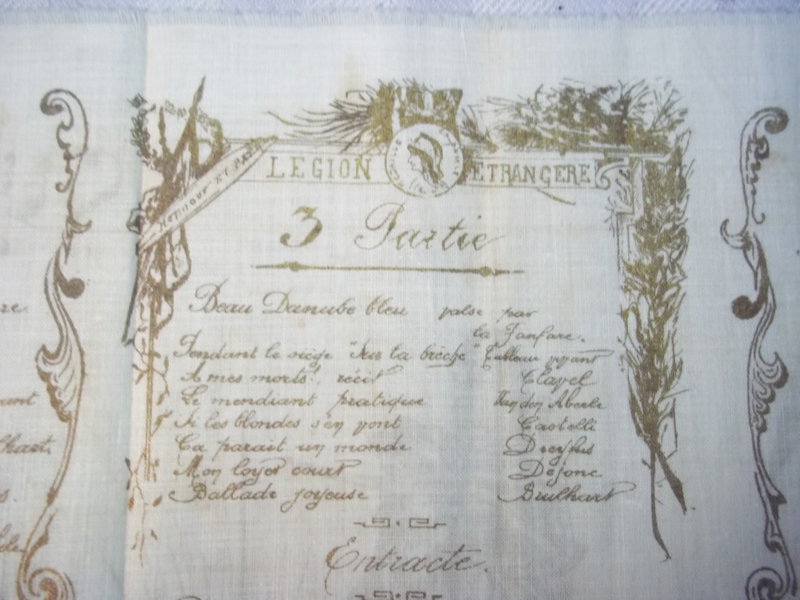 HONNEUR ET
LEGION ETRANGERE
3 Partie
Beau Danube bleu valse par
la Fanfare.
Pendant le siège "Sur la brèche" Tableau vivant
A mes morts! récit Clavel
Le mendiant pratique Vanden Abeele
Si les blondes s'en vont Castelli
Ça parait un monde Dreyfus
Mon loyer court Dejonc
Ballade joyeuse Brulhart
Entracte.